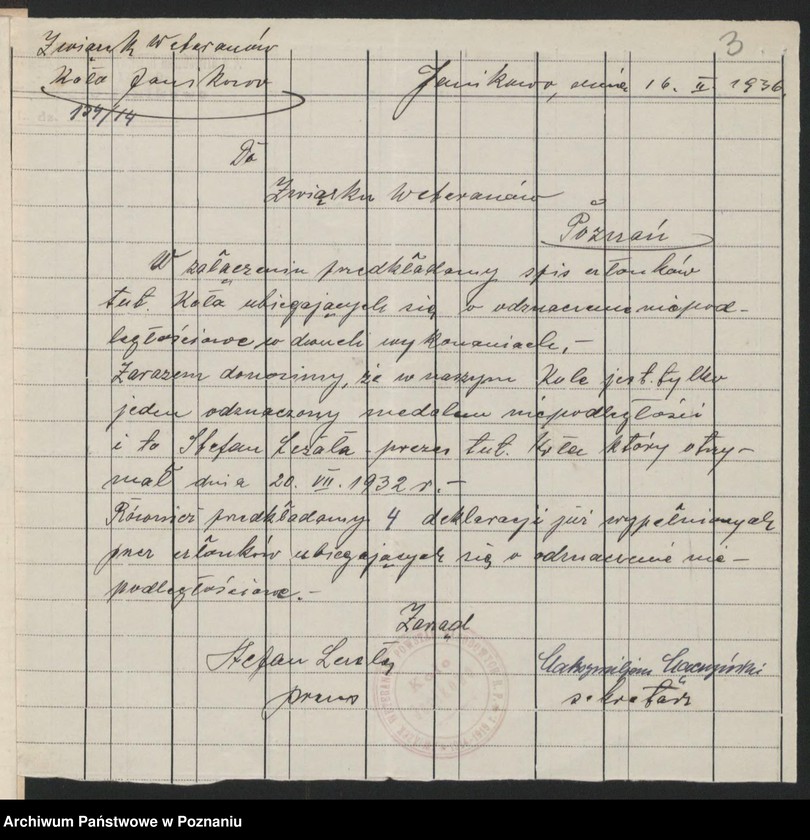 3
Związek Weteranów
Koła Janikowo
Janikowo, dnia 16. II. 1936.
134/14
Do
Związku Weteranów
Poznań
W załączeniu przedkładamy spis członków
tut. Koła ubiegających się o odznaczenie niepod-
ległościowe w dwuch wykonaniach,-
Zarazem donosimy, że w naszym Kole jest tylko
jeden odznaczony medalem niepodległości
i to Stefan Lezała prezes tut. Koła który otrzy-
mał dnia 20. VII. 1932 r.-
Również przedkładamy 4 deklaracji już wypełnionych
przez członków ubiegających się o odznaczenie nie-
podległościowe.-
Zarząd
Stefan
prezes
sekretarz
Archiwum Państwowe w Poznaniu